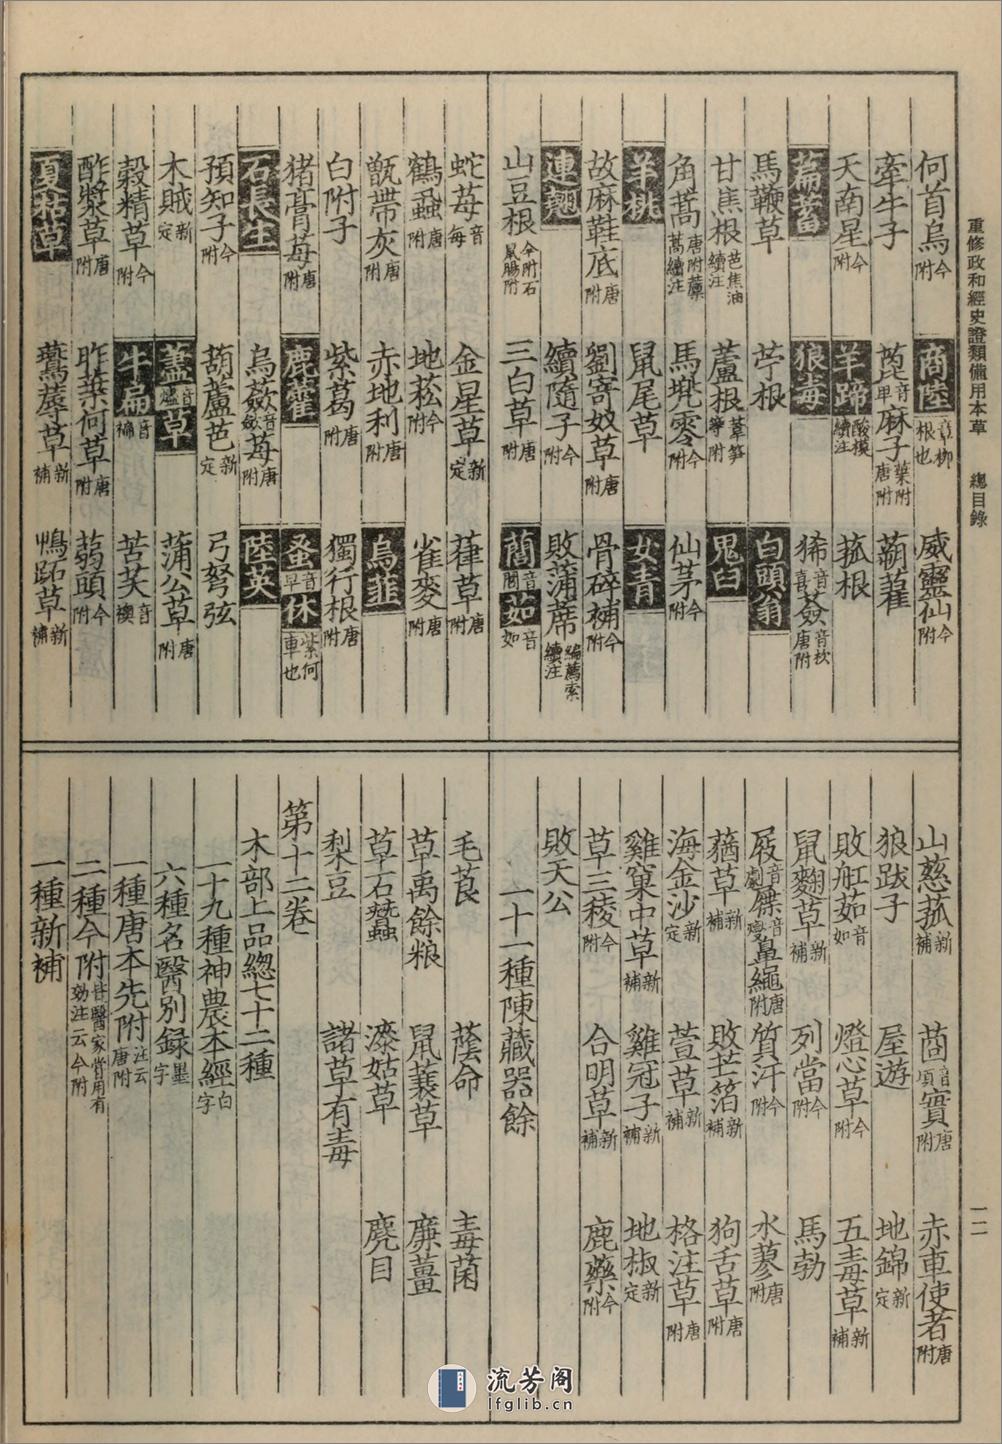 重修政和經史證類備用本草 總目錄
一二
何首烏今附 商陸章柳根也 威靈仙今附
牽牛子 蓖音甲麻子葉附唐附 蒴藋
天南星今附 羊蹄酸模續注 菰根
萹蓄 狼毒 豨音喜薟音枚唐附
馬鞭草 苧根 白頭翁
甘焦根芭焦油續注 蘆根葦笋等附 鬼臼
角蒿唐附藁蒿續注 馬兜零今附 仙茅今附
羊桃 鼠尾草 女青
故麻鞋底唐附 劉寄奴草唐附 骨碎補今附
連翹 續隨子今附 敗蒲席編薦索續注
山豆根今附石鼠腸附 三白草唐附 藺音閭茹音如
蛇莓音每 金星草新定 葎草唐附
鶴蝨唐附 地菘今附 雀麥唐附
甑帶灰唐附 赤地利唐附 烏韭
白附子 紫葛唐附 獨行根唐附
猪膏莓唐附 鹿藿 蚤音早休紫何車也
石長生 烏蘞音斂莓唐附 陸英
預知子今附 葫蘆芭新定 弓弩弦
木賊新定 藎音燼草 蒲公草唐附
穀精草今附 牛扁音褊 苦芺音襖
酢漿草唐附 昨葉何草唐附 蒻頭今附
夏枯草 鷰蓐草新補 鴨跖草新補
山慈菰新補 茼音頃實唐附 赤車使者唐附
狼跋子 屋遊 地錦新定
敗舡茹音如 燈心草今附 五毒草新補
鼠麴草新補 列當今附 馬勃
屐音劇屧音燮鼻繩唐附 質汗今附 水蓼唐附
蕕草新補 敗芒箔新補 狗舌草唐附
海金沙新定 萱草新補 格注草唐附
雞窠中草新補 雞冠子新補 地椒新定
草三稜今附 合明草新補 鹿藥今附
敗天公
一十一種陳藏器餘
毛莨 蔭命 毒菌
草禹餘粮 鼠蓑草 廉薑
草石蠶 漆姑草 麂目
梨豆 諸草有毒
第十二卷
木部上品總七十二種
一十九種神農本經白字
六種名醫別錄墨字
一種唐本先附注云唐附
二種今附皆醫家嘗用有効注云今附
一種新補
流芳阁
lfglib.cn